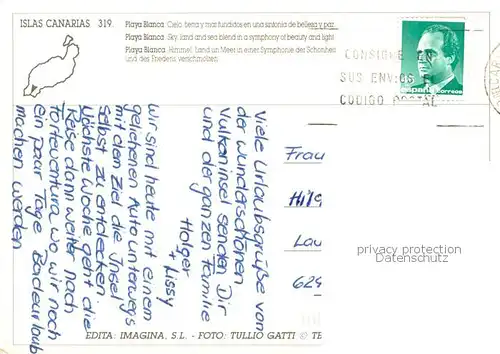 ISLAS CANARIAS 319.
Playa Blanca: Cielo, tierra y mar fundidos en una sinfonía de belleza y paz.
Playa Blanca: Sky, land and sea blend in a symphony of beauty and light
Playa Blanca: Himmel, Land un Meer in einer Symphonie des Schönheit
und des Friedens verschmolzen
CONSIGNE EN
SUS ENVIOS EL
CODIGO POSTAL
España correos
Viele Urlaubsgrüße von
der wunderschönen
Vulkaninsel senden Dir
und der ganzen Familie
Holger
+ Lissy
Wir sind heute mit einem
geliehenen Auto unterwegs
mit dem Ziel die Insel
selbst zu entdecken.
Nächste Woche geht die
Reise dann weiter nach
Forteventura wo wir noch
ein paar Tage Badeurlaub
machen werden
Frau
Lau
629
privacy protection
EDITA: IMAGINA, S.L. - FOTO: TULLIO GATTI © TE